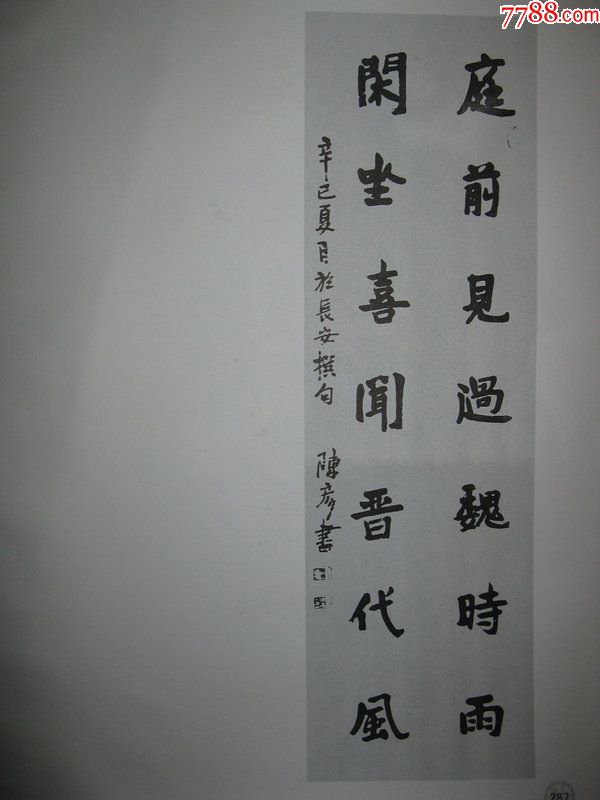 7788.com
庭前見過魏時雨
閑坐喜聞晋代風
辛巳夏月於長安撰句 陳彦書
287